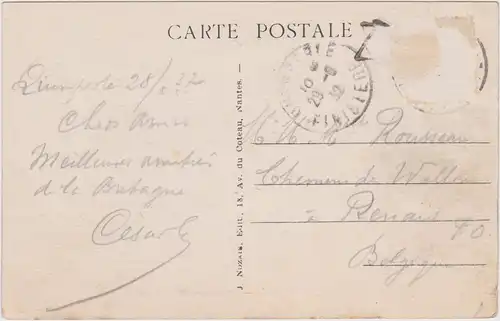 CARTE POSTALE
Quimperlé 28/ 32
Chers Amis
Meilleures amitiés
de la Bretagne
J. Nozais, Edit., 18, Av. du Coteau, Nantes.
FINISTERE
10 29 32
M. M. Rousseau
Chemin de Wallon
à Renaix
Belgique